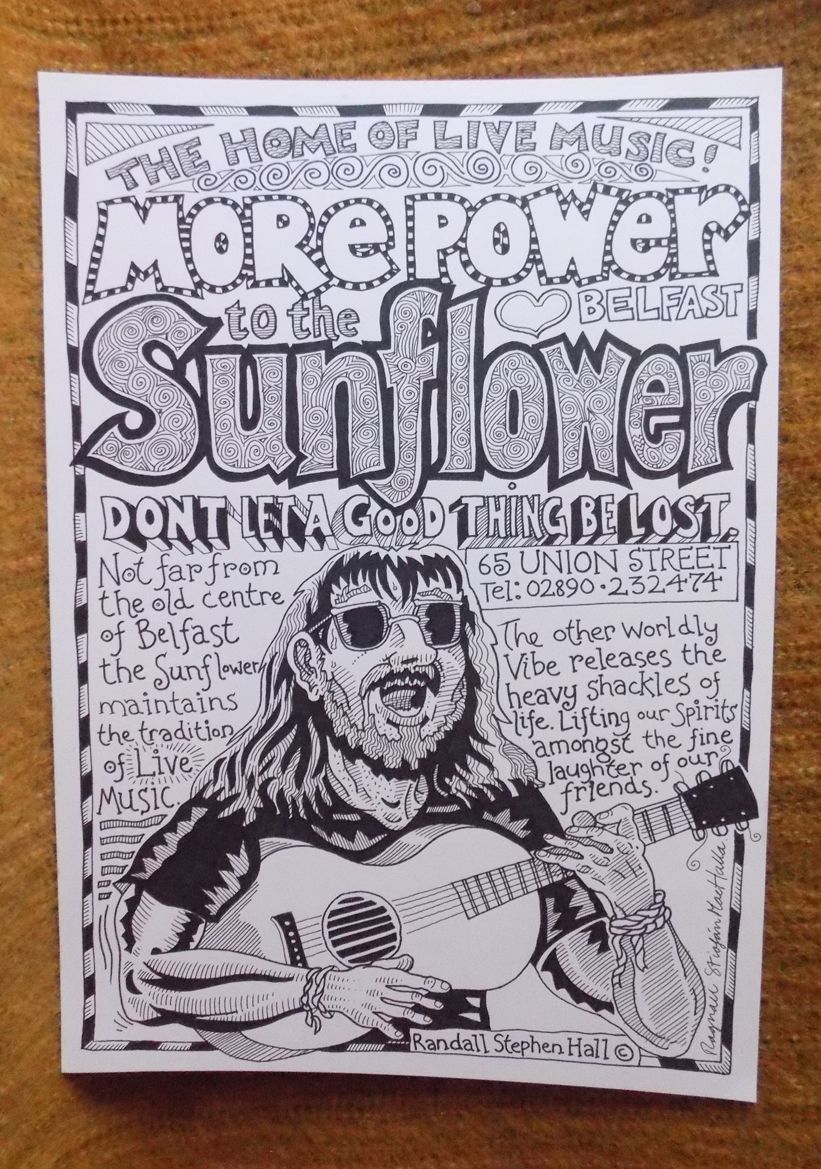 THE HOME OF LIVE MUSIC!
MORe POWer
to the
BELFAST
Sunflower
DONT LET A GOOD THiNG BE LOST.
Not far from
the old centre
of Belfast
the Sunflower
maintains
the tradition
of Live
MUSIC.
65 UNION STREET
Tel: 02890 · 232474
The other worldly
Vibe releases the
heavy shackles of
life. Lifting our Spirits
amongst the fine
laughter of our
friends.
Randall Stephen Hall ©